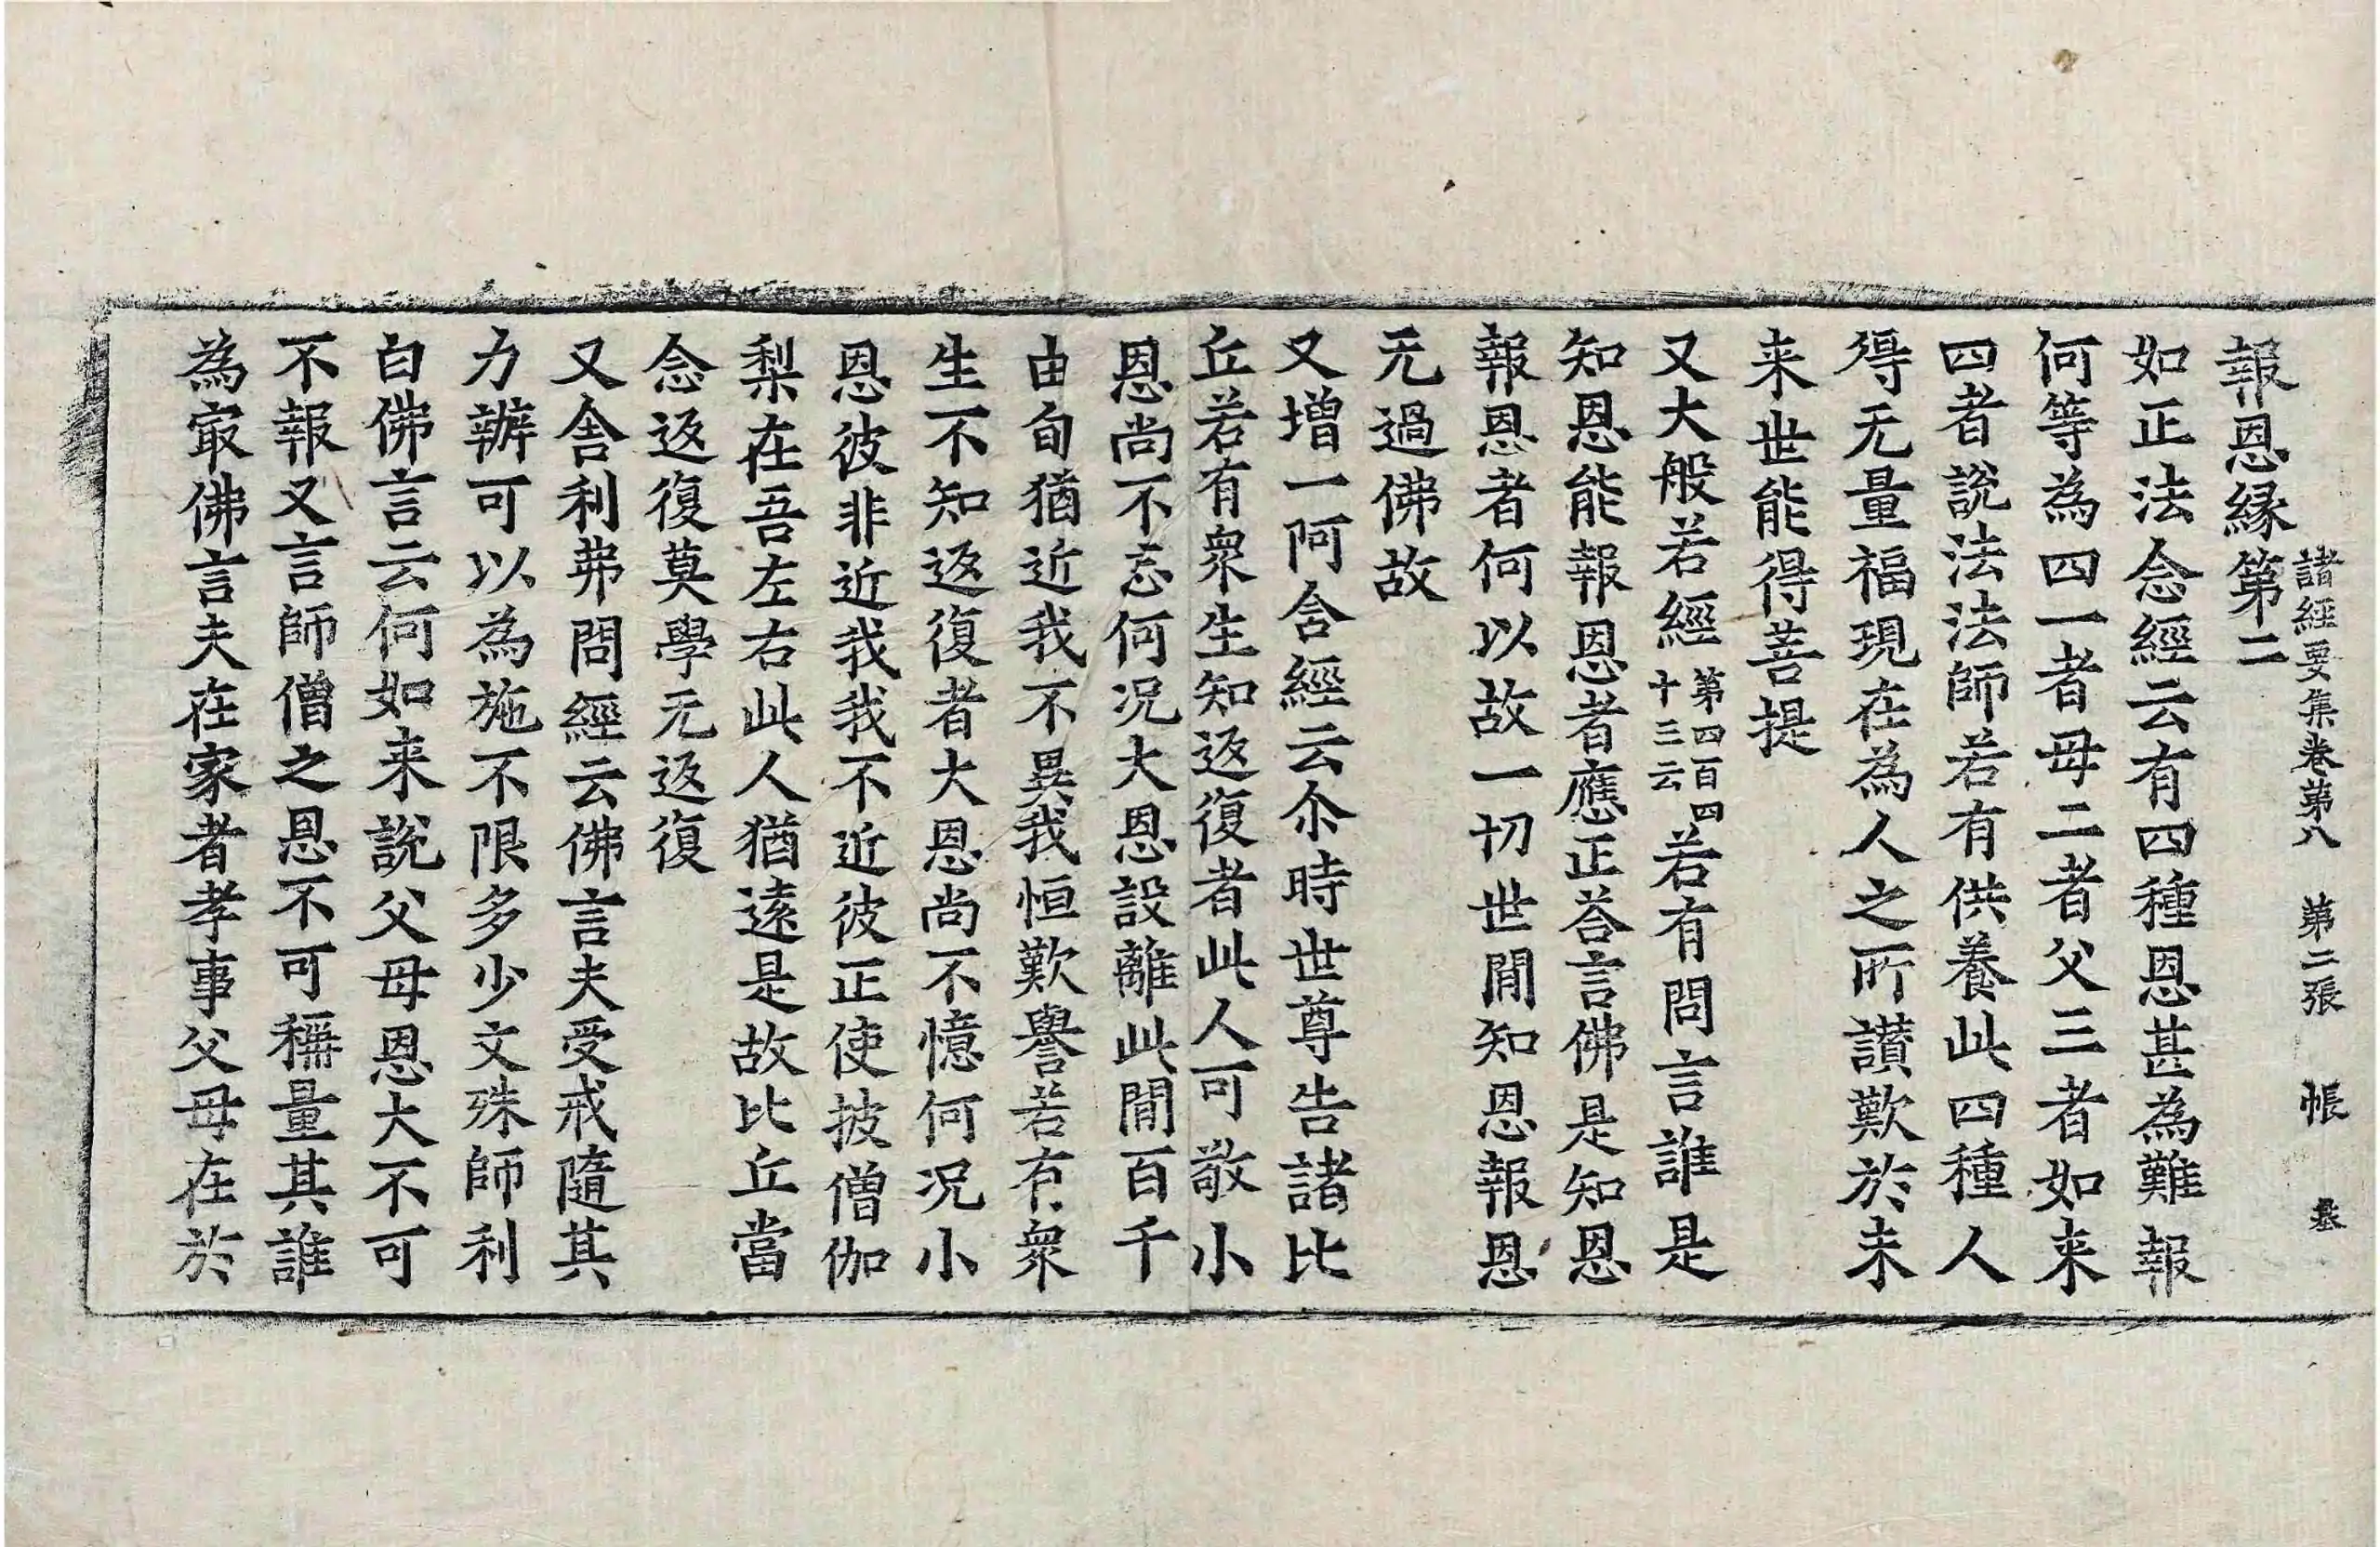 諸經要集卷第八 第二張 帳
報恩緣第二
如正法念經云有四種恩甚為難報
何等為四一者母二者父三者如来
四者說法法師若有供養此四種人
得无量福現在為人之所讃歎於未
来世能得菩提
又大般若經第四百四十三云若有問言誰是
知恩能報恩者應正荅言佛是知恩
報恩者何以故一切世閒知恩報恩
无過佛故
又增一阿含經云尒時世尊告諸比
丘若有衆生知返復者此人可敬小
恩尚不忘何况大恩設離此閒百千
由旬猶近我不異我恒歎譽若有衆
生不知返復者大恩尚不憶何况小
恩彼非近我我不近彼正使披僧伽
梨在吾左右此人猶遠是故比丘當
念返復莫學无返復
又舍利弗問經云佛言夫受戒隨其
力辦可以為施不限多少文殊師利
白佛言云何如来說父母恩大不可
不報又言師僧之恩不可稱量其誰
為㝡佛言夫在家者孝事父母在於